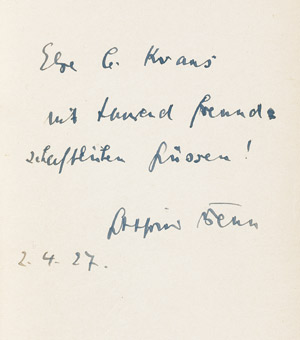 Else C. Kraus
mit tausend freund-
schaftlichen Grüssen!
Gottfried Benn
2.4.27.